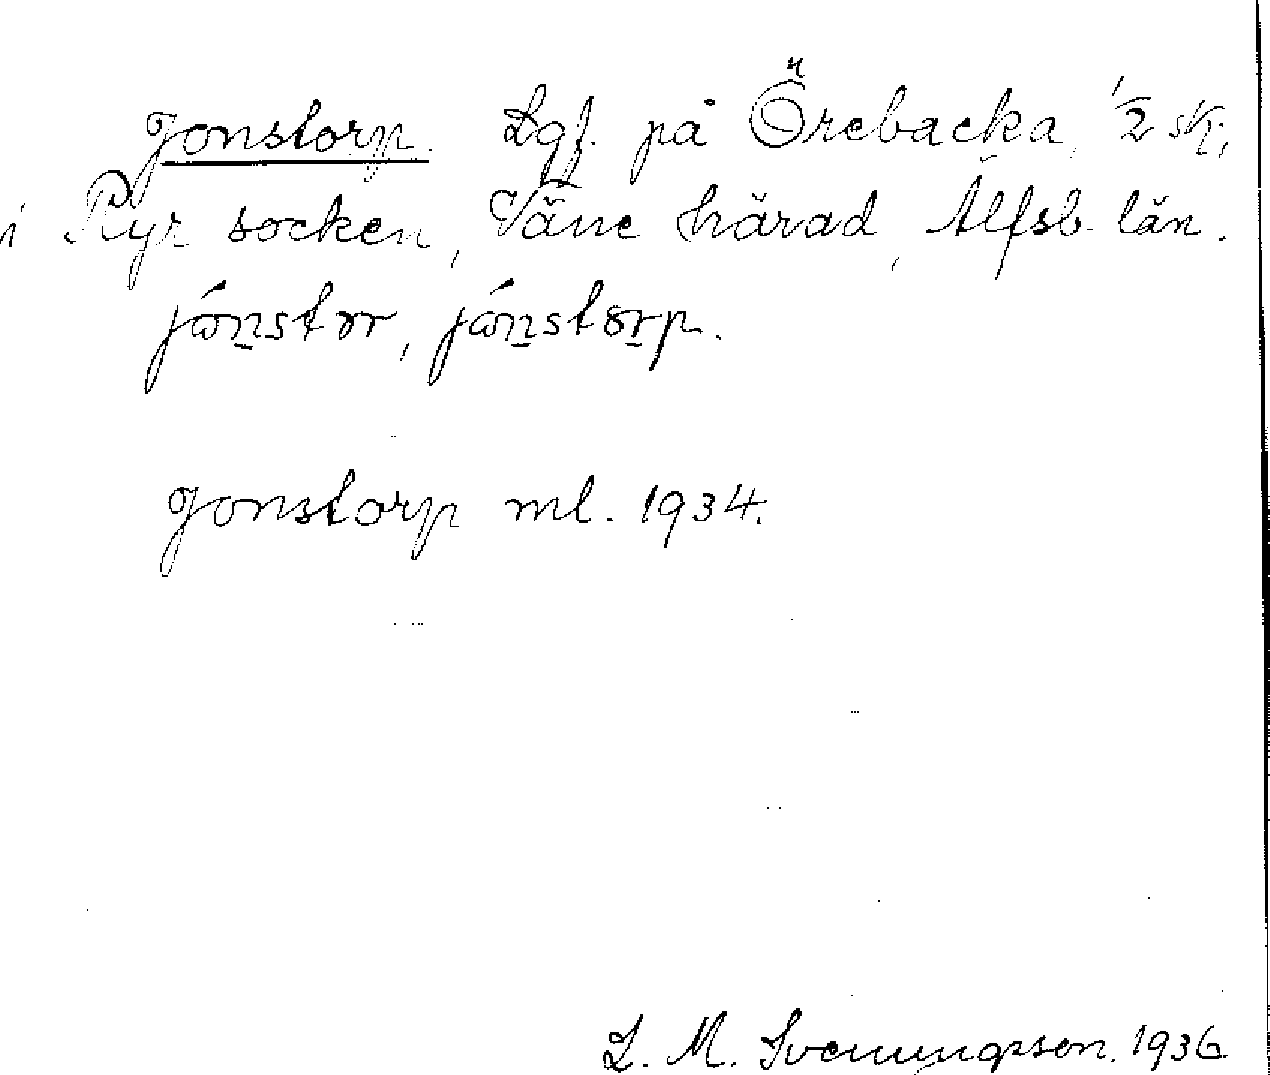 Jonstorp. Lgf. på Örebacka, 1/2 sk;
i Ryr socken, Väne härad, Älfsb. län.
jɷ́n̲stɤr, jɷ́n̲stɤr̲p.
Jonstorp ml. 1934.
L. M. Svenungsson. 1936